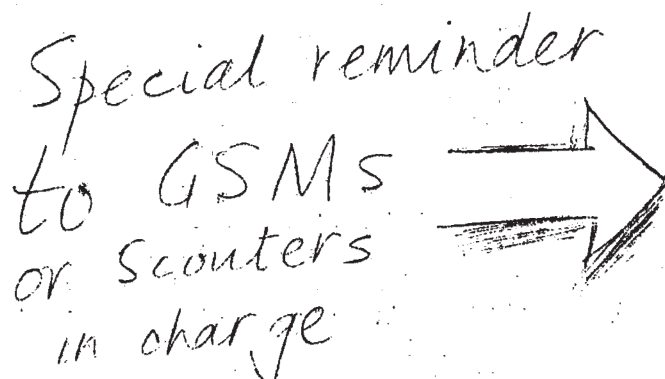 Special reminder
to GSMs
or Scouters
in charge